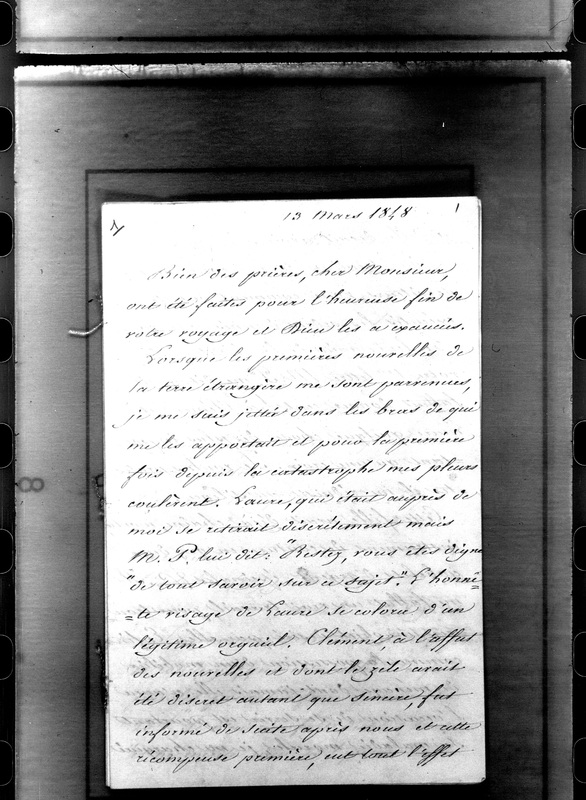 13 Mars 1848
1
Bien des prières, cher Monsieur,
ont été faites pour l'heureuse fin de
votre voyage et Dieu les a exaucées.
Lorsque les premières nouvelles de
la terre étrangère me sont parvenues,
je me suis jettée dans les bras de qui
me les apportait et pour la première
fois depuis la catastrophe mes pleurs
coulèrent. Laure, qui était auprès de
moi se retirait discrètement mais
M. P. lui dit: "Restez, vous êtes digne
"de tout savoir sur ce sujet". L'honnê=
=te visage de Laure se colora d'un
légitime orgueil. Clément, à l'affut
des nouvelles et dont le zèle avait
été discret autant que sincère, fut
informé de suite après nous et cette
récompense première, eut tout l'effet
8